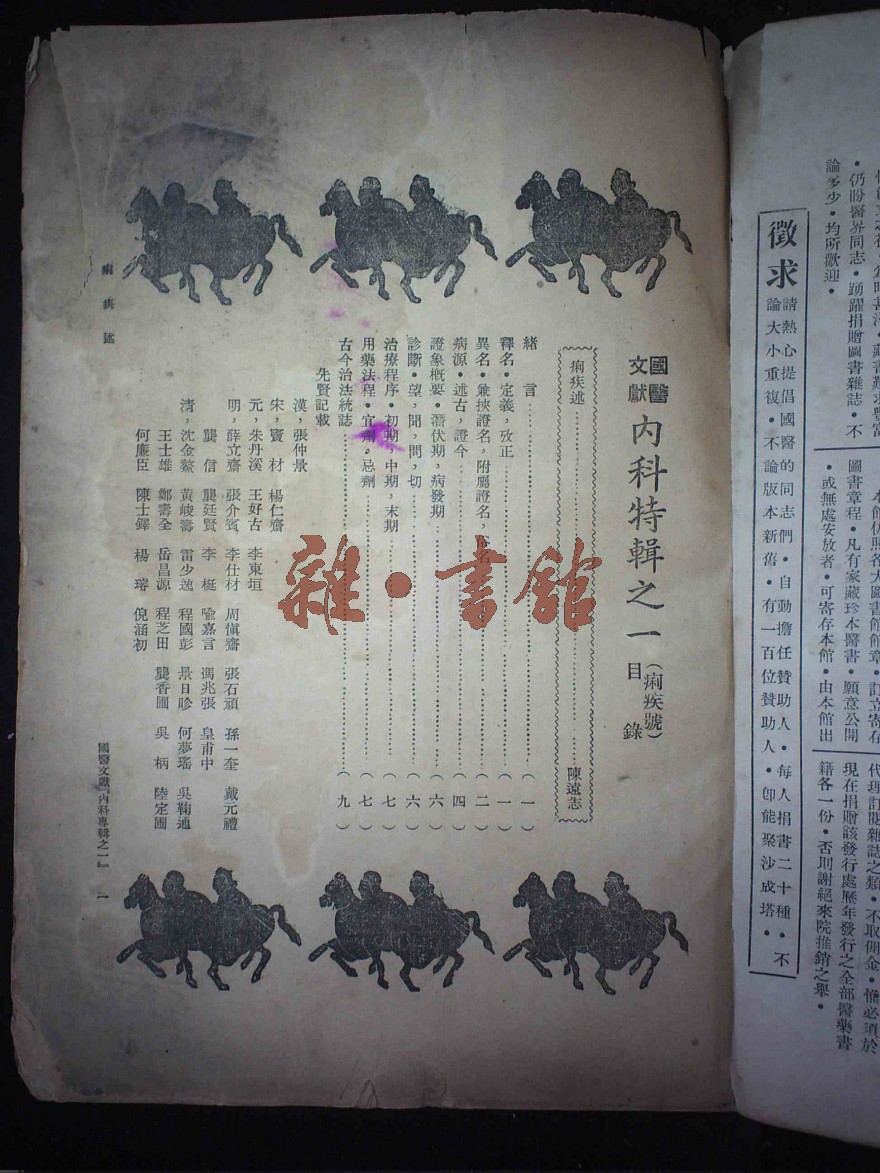 ・仍盼醫界同志・踴躍捐贈圖書雜誌・不
論多少・均所歡迎・
本館仿照各大圖書館館章・訂立寄存
圖書章程・凡有家藏珍本醫書・願意公開
・或無處安放者・可寄存本館・由本館出
代理訂閱雜誌之類・不取佣金・惟必須於
現在捐贈該發行處歷年發行之全部醫藥書
籍各一份・否則謝絕來院推銷之舉・
徵求
請熱心提倡國醫的同志們・自動擔任贊助人・每人捐書二十種・不
論大小重複・不論版本新舊・有一百位贊助人・即能聚沙成塔・
國醫文獻 內科特輯之一（痢疾號）目錄
痢疾述………陳遠志
緒 言………（一）
釋名・定義，攷正………（一）
異名・兼挾證名，附屬證名，俗名………（二）
病源・述古，證今………（四）
證象概要・潛伏期，病發期………（六）
診斷・望，聞，問，切………（六）
治療程序・初期，中期，末期………（七）
用藥法程・宜劑，忌劑………（七）
古今治法統誌………（九）
先賢記載
漢，張仲景
宋，竇 材 楊仁齋
元，朱丹溪 王好古 李東垣
明，薛立齋 張介賓 李仕材 周慎齋 張石頑 孫一奎 戴元禮
龔 信 龔廷賢 李 梴 喻嘉言 馮兆張 皇甫中
清，沈金鰲 黃峻壽 雷少逸 程國彭 景日昣 何夢瑤 吳鞠通
王士雄 鄭壽全 岳昌源 程芝田 龔香圃 吳 炳 陸定圃
何廉臣 陳士鐸 楊 璿 倪涵初
痢疾述
國醫文獻『內科專輯之一』 一
雜・書館